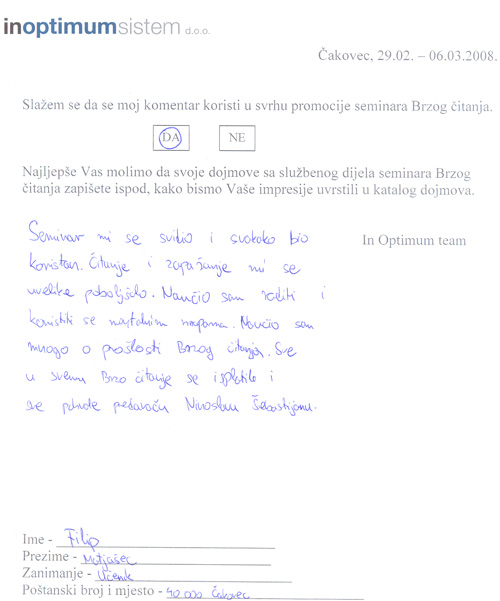 inoptimumsistem d.o.o.
Čakovec, 29.02. – 06.03.2008.
Slažem se da se moj komentar koristi u svrhu promocije seminara Brzog čitanja.
DA NE
Najljepše Vas molimo da svoje dojmove sa službenog dijela seminara Brzog
čitanja zapišete ispod, kako bismo Vaše impresije uvrstili u katalog dojmova.
In Optimum team
Seminar mi se svidio i svakako bio
koristan. Čitanje i zapažanje mi se
uvelike poboljšalo. Naučio sam raditi i
koristiti se mentalnim mapama. Naučio sam
mnogo o prošlosti Brzog čitanja. Sve
u svemu Brzo čitanje se isplatilo i
sve pohvale predavaču Miroslavu Šebastijanu.
Ime - Filip
Prezime - Matjašec
Zanimanje - Učenik
Poštanski broj i mjesto - 40 000 Čakovec